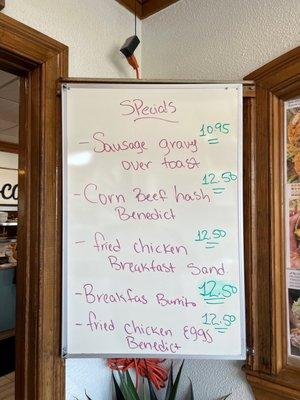 SPecials
- Sausage gravy 10.95
over toast
- Corn Beef hash 12.50
Benedict
- fried chicken 12.50
Breakfast Sand.
- Breakfas Burrito 12.50
- fried chicken Eggs 12.50
Benedict